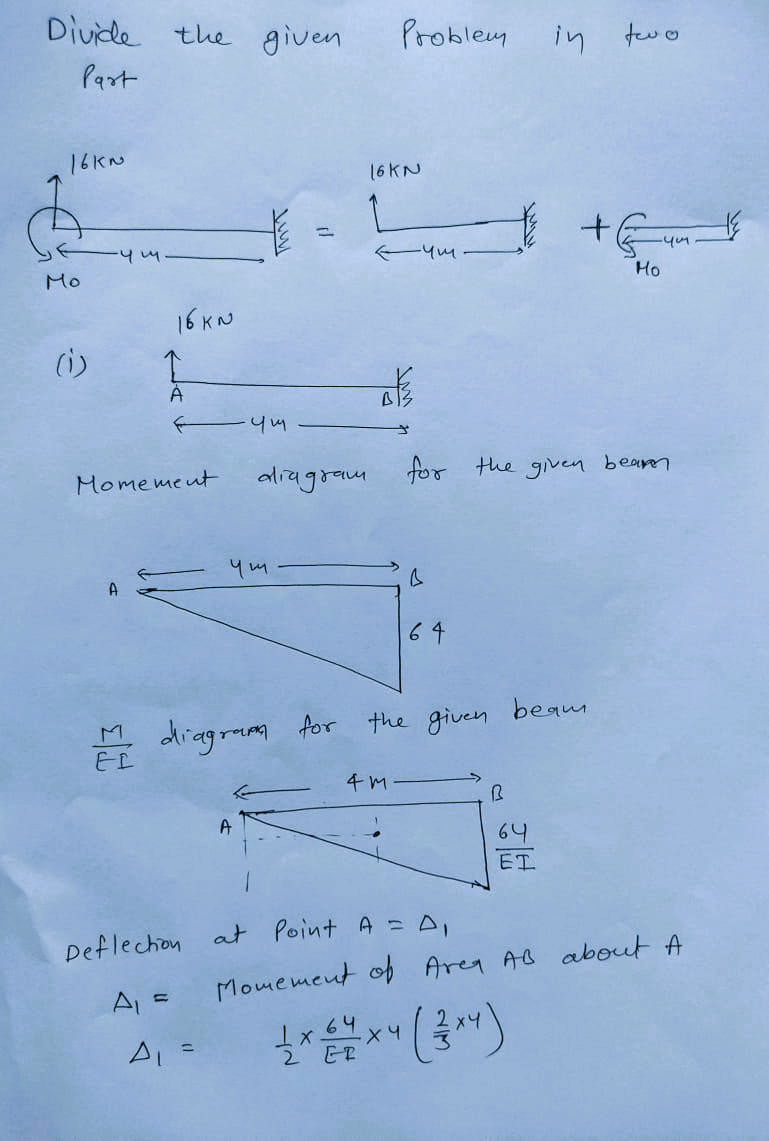 Divide the given Problem in two
Part
16KN
16KN
= +
4m
4m
4m
Mo
Mo
16KN
(i)
A
B
4m
Momement diagram for the given beam
4m
A
B
64
M/EI diagram for the given beam
4m
B
A
64/EI
Deflection at Point A = Δ1
Δ1 = Momement of Area AB about A
Δ1 = 1/2 × 64/EI × 4 (2/3 ×4)